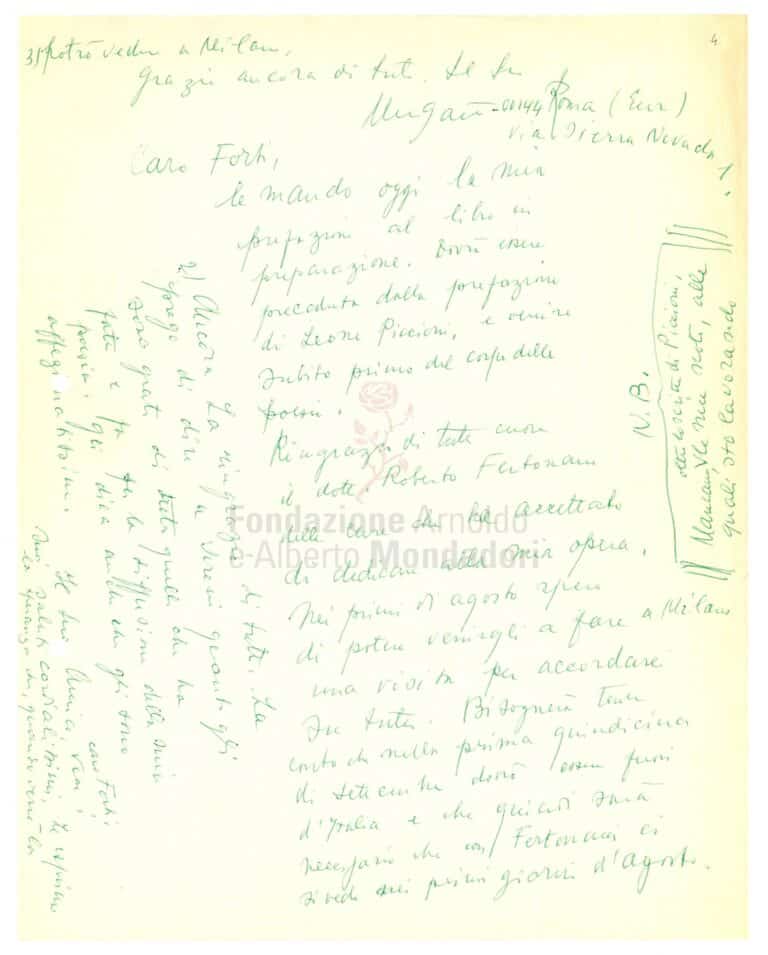 4
Caro Forti,
le mando oggi la mia
prefazione al libro in
preparazione. Dovrà essere
preceduta dalla prefazione
di Leone Piccioni, e venire
subito prima del corpo delle
poesie.
Ringrazi di tutto cuore
il dott. Roberto Fertonani
delle cure che ha accettato
di dedicare alla mia opera.
Nei primi di agosto spero
di potere venirgli a fare a Milano
una visita per accordare
su tutto. Bisognerà tener
conto che nella prima quindicina
di settembre dovrò essere fuori
d'Italia e che quindi sarà
necessario che con Fertonani ci
si veda nei primi giorni d'agosto.
2) Ancora La ringrazio di tutto. La
prego di dire a Sereni quanto gli
sono grato di tutto quello che ha
fatto e fa per la diffusione della mia
poesia. Gli dica anche che gli sono
affezionatissimo. caro Forti.
Il Suo Amico vero,
Suoi saluti cordialissimi, Le esprimo
la speranza che, quando verrò lo
3) potrò vedere a Milano.
Grazie ancora di tutto. Il Suo
Ungaretti - 00144 Roma (Eur)
via Sierra Nevada 1.
N.B.
oltre lo scritto di Piccioni,
Mancano le mie note, alle
quali sto lavorando
Fondazione Arnoldo
e Alberto Mondadori